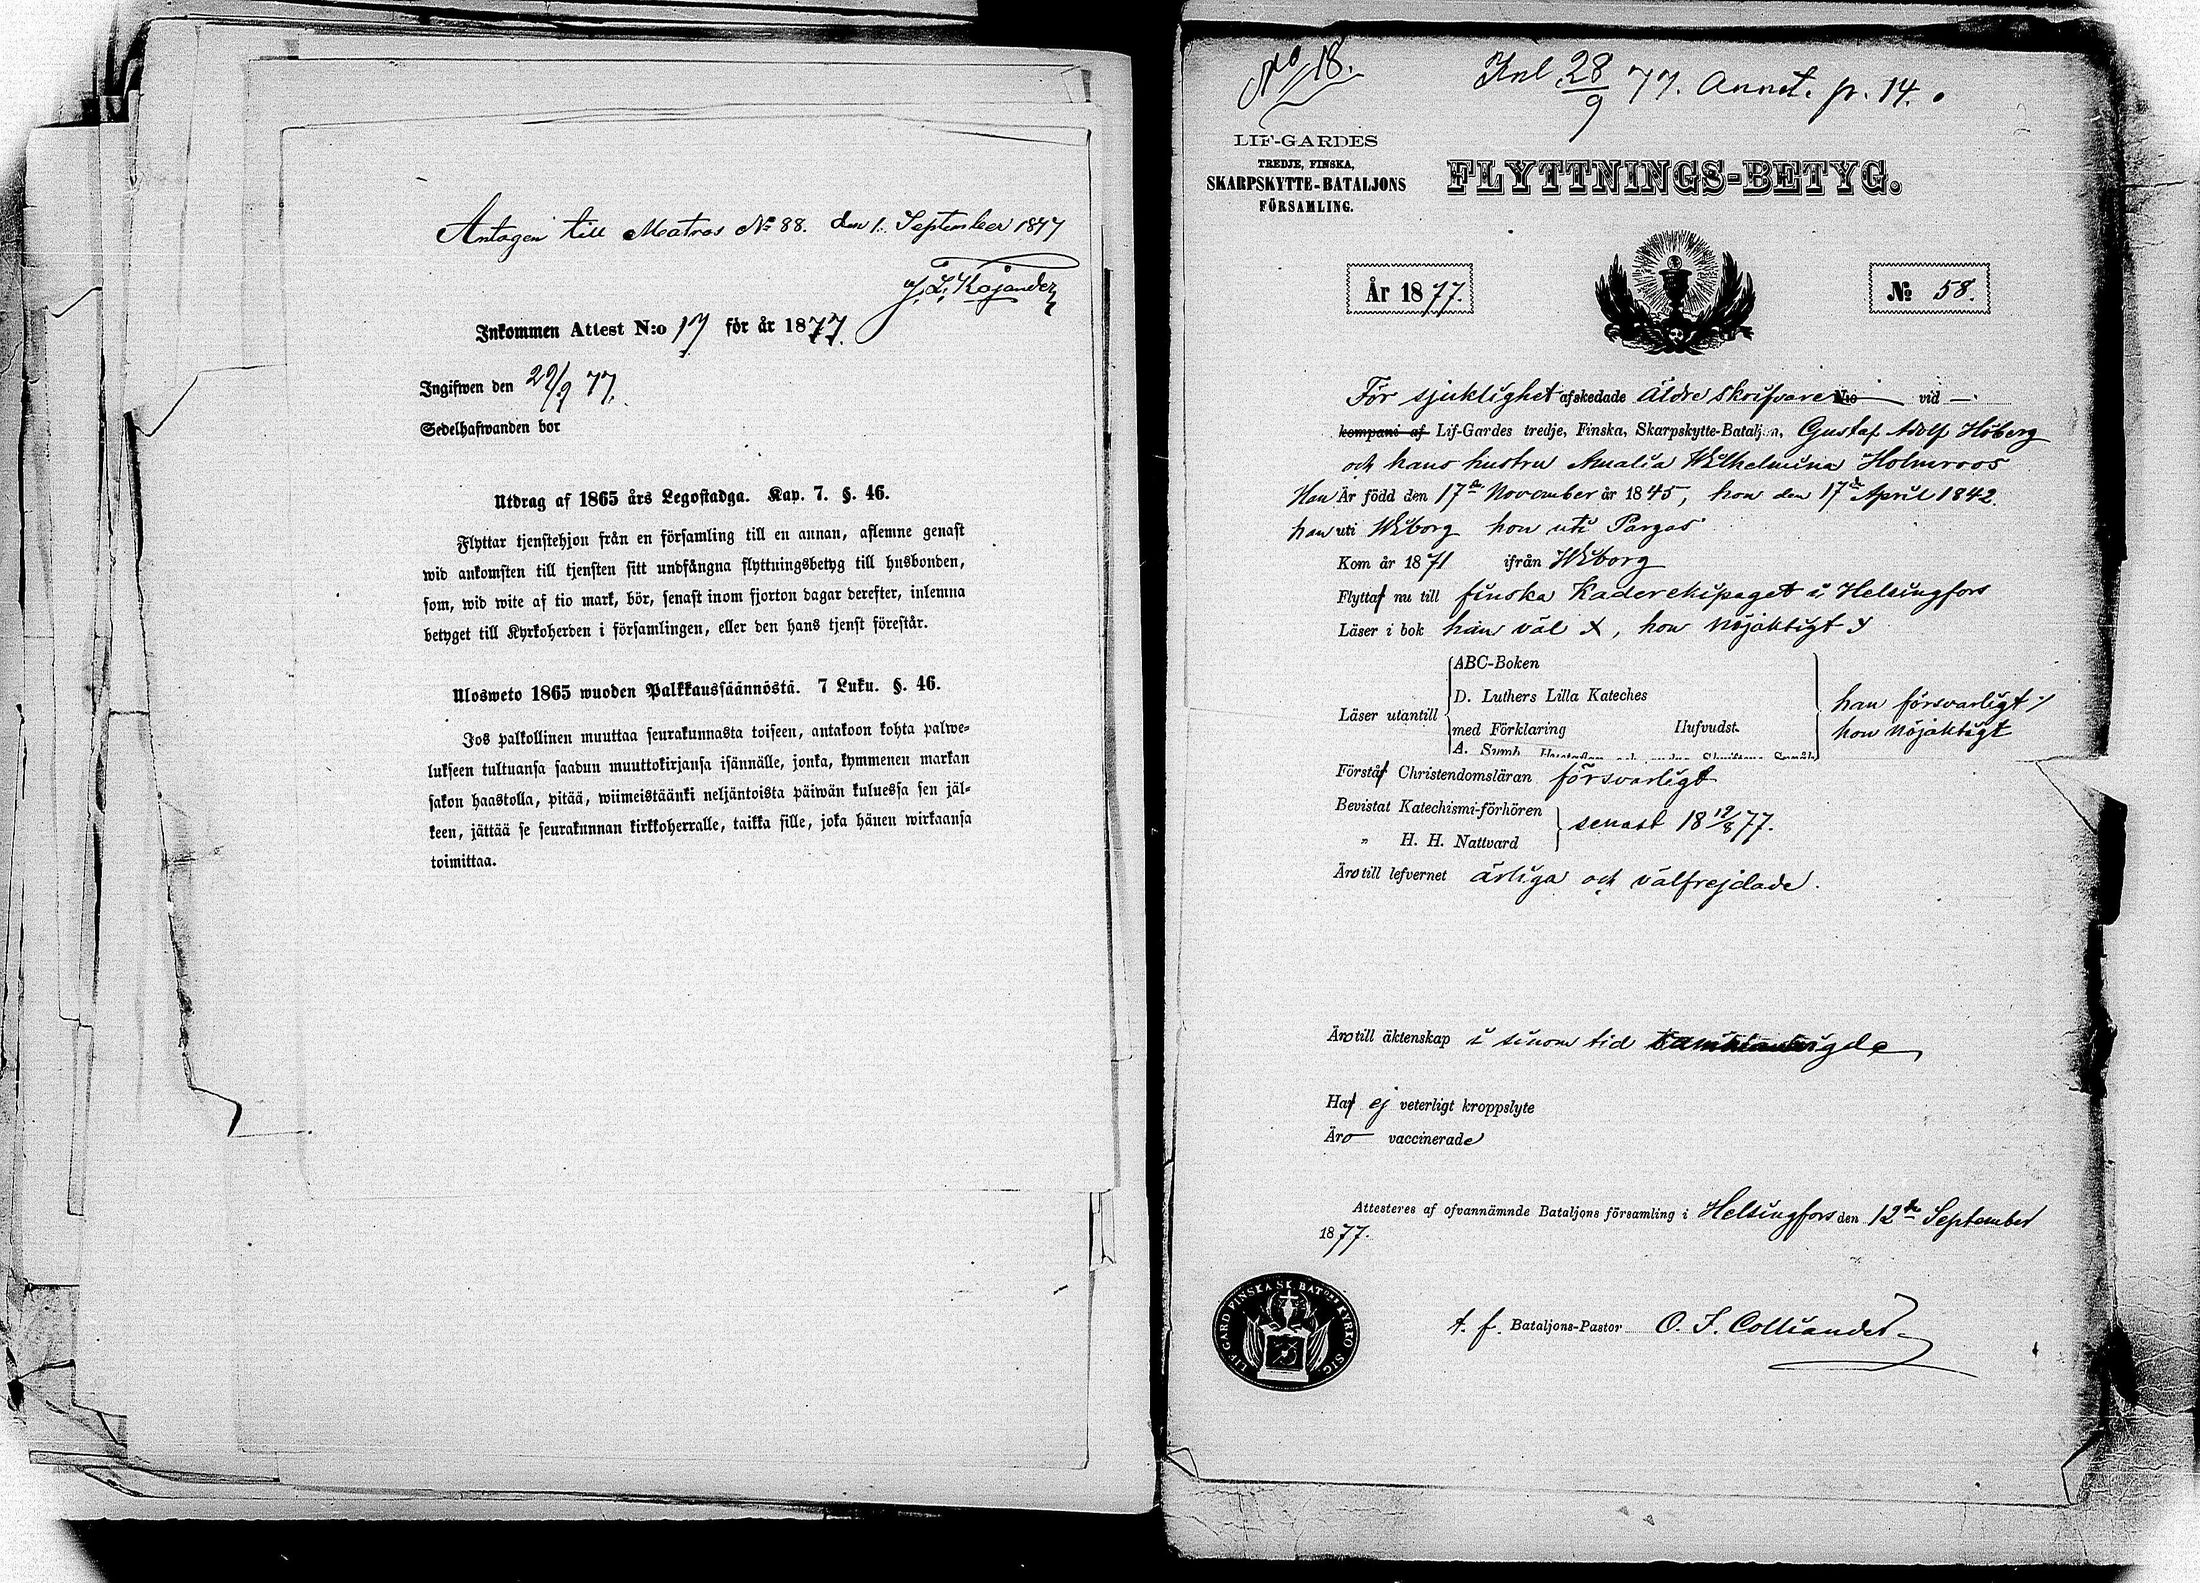 Antagen till Matros No 88. den 1. September 1877
Inkommen Attest N:o 17 för år 1877.
Ingifwen den 29/9 77.
Sedelhafwanden bor
Utdrag af 1865 års Legostadga. Kap. 7. §. 46.
Flyttar tjenstehjon från en församling till en annan, aflemne genast
wid ankomsten till tjensten sitt undfångna flyttningsbetyg till husbonden,
som, wid wite af tio mark, bör, senast inom fjorton dagar derefter, inlemna
betyget till Kyrkoherden i församlingen, eller den hans tjenst förestår.
Ulosweto 1865 wuoden Palkkaussäännöstä. 7 Luku. §. 46.
Jos palkollinen muuttaa seurakunnasta toiseen, antakoon kohta palwe-
lukseen tultuansa saadun muuttokirjansa isännälle, jonka, kymmenen markan
sakon haastolla, pitää, wiimeistäänki neljäntoista päiwän kuluessa sen jäl-
keen, jättää se seurakunnan kirkkoherralle, taikka sille, joka hänen wirkaansa
toimittaa.
No 18.
Inl 28/9 77. Annot. p. 14.
LIF-GARDES
TREDJE, FINSKA,
SKARPSKYTTE-BATALJONS
FÖRSAMLING.
FLYTTNINGS-BETYG.
År 1877.
No 58.
För sjuklighet afskedade äldre skrifvare N:o vid —
kompani af Lif-Gardes tredje, Finska, Skarpskytte-Bataljon, Gustaf Adolf Höberg
och hans hustru Amalia Wilhelmina Holmroos
Han Är född den 17de November år 1845, hon den 17de April 1842.
han uti Wiborg hon uti Pargas
Kom år 1871 ifrån Wiborg
Flyttar nu till finska Kaderekipaget i Helsingfors
Läser i bok han väl X, hon nöjaktigt
ABC-Boken
D. Luthers Lilla Kateches
Läser utantill med Förklaring Hufvudst.
A. Symb. Hustaflan och andra Skriftens Språk
han försvarligt
hon nöjaktigt
Förstår Christendomsläran försvarligt
Bevistat Katechismi-förhören
„ H. H. Nattvard
senast 18 12/8 77.
Äro till lefvernet ärliga och välfrejdade.
Äro till äktenskap i sinom tid sammanvigde
Haf ej veterligt kroppslyte
Äro vaccinerade
Attesteres af ofvannämnde Bataljons församling i Helsingfors den 12te September
1877.
LIF GARD FINSKA SK BATONS KYRKO SIG.
t. f. Bataljons-Pastor O. F. Colliander